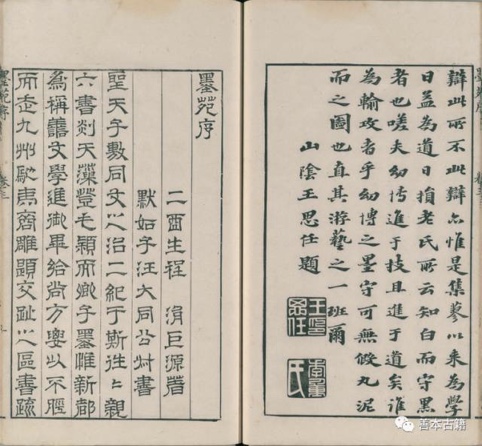 辯此所不必辯亦惟是集蓼以来為學
日益為道日損老氏所云知白而守黒
者也嗟夫幼博進于技且進于道矣誰
為輸攻者乎幼博之墨守可無假丸泥
而之圉也直其游藝之一班爾
山陰王思任題
王思任
季重氏
墨苑序
二酉生程涓巨源譔
默如子汪大同公艸書
聖天子敷同文之治二紀于斯往往親
六書剡天藻登毛穎而卿子墨惟新都
為稱雋文學進御畢給尚方要以不脛
而走九州馳夷裔雕題交趾之區書疏
墨苑序
卷三
善本古籍